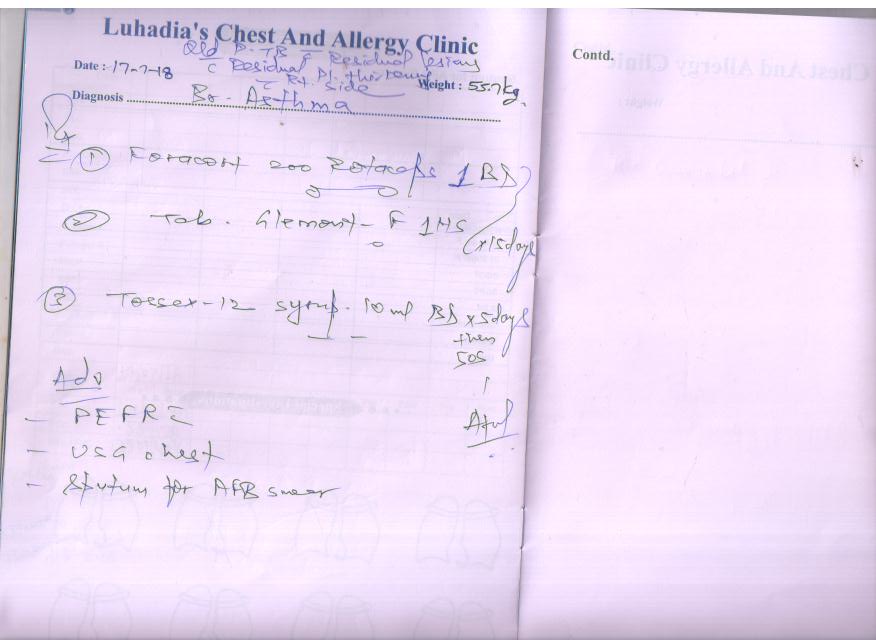 Luhadia's Chest And Allergy Clinic
Old P. TB c̄ Residual lesions
Date : 17-7-18 c̄ Residual Pl. thickening
c̄ Rt. Side Weight : 55.7kg.
Diagnosis Br. Asthma
① Foracort 200 Rotacaps 1 BD
② Tab. Glemont-F 1HS x15days
③ Tossex-12 syrup. 10ml BD x 5days
then
SOS
Adv
- PEFR
- USG chest
- Sputum for AFB smear
Contd.
Chest And Allergy Clinic
Weight :